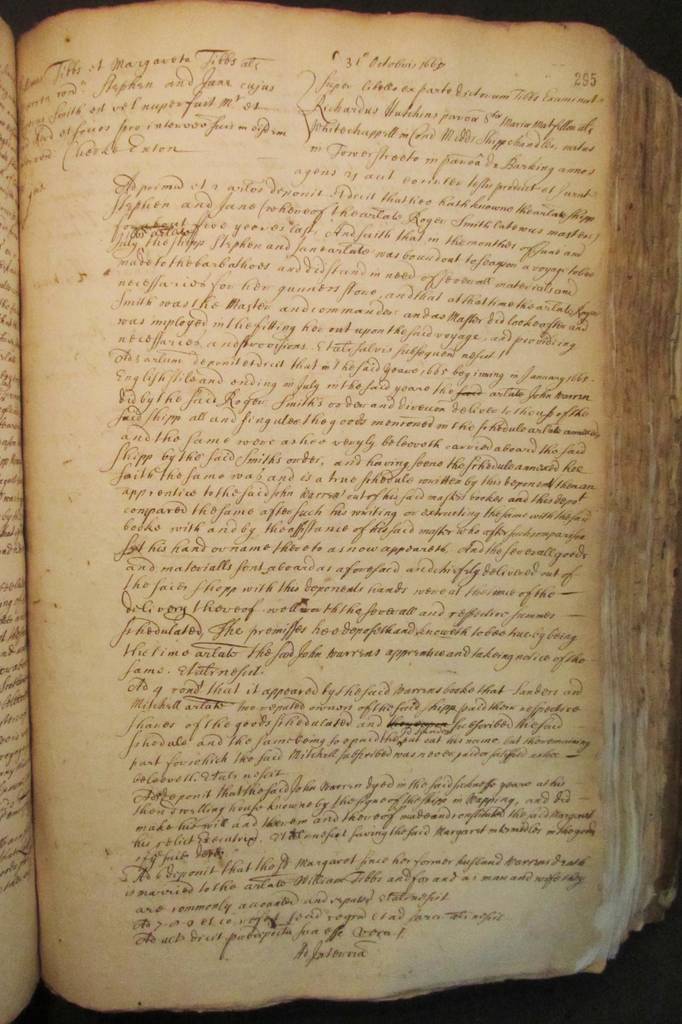 295
Tibbs et Margareta Tibbs als
Stephen and Jane cujus
Smith est vel nuper fuit Mr et
pro interesse suo in eisdem
Clerke Exton
31o Octobris 1668
Super libello ex parte dictorum Tibbs Examinat
Richardus Hutchins parochiæ Stæ Mariæ Matfellon als
Whitechappell in Com Midd Shippchandler, natus
in Towerstreete in parochia de Barking annos
agens 21 aut eo circiter testis productus et Jurat
Ad primum et 2 arlos deponit et dicit that hee hath knowne the arlate shipp
Stephen and Jane (whereof the arlate Roger Smith late was master)
five yeares last, And saith that in the monthes of June and
July the shipp Stephen and Jane arlate was bound out to sea upon a voyage to bee
made to the barbathoes and did stand in need of severall materialls and
necessaries for her gunners store, and that at that time the arlate Roger
Smith was the Master and commander and as Master did looke after and
was imployed in the fitting her out upon the said voyage, and providing
necessaries and provisions. Et als salvis subsequen nescit
Ad 3 arlum deponit et dicit that in the said yeare 1665 beginning in January 1665
English stile and ending in July in the said yeare the arlate John Warren
did by the said Roger Smiths order and direccon deliver to the use of the
said shipp all and singuler the goods menconed in the schedule arlate annexed
and the same were as hee veryly beleeveth carried aboard the said
shipp by the said Smiths order, and having seene the schedule annexed hee
saith the same was and is a true schedule written by this deponent then an
apprentice to the said John Warren out of his said masters bookes and this depot
compared the same after such his writing or extracting the same with the said
booke with and by the assistance of his said master who after such comparison
set his hand or name thereto as now appeareth, And the severall goods
and materialls sent aboard as aforesaid and chiefly delivered out of
the sales shopp with this deponents hands were at the time of the
delivery thereof well worth the severall and respective summes
schedulated, The premisses hee deposeth and knoweth to bee true hee being
the time arlate the said John Warrens apprentice and takeing notice of the
same. Et als nescit.
Ad 4 rondt that it appeared by the said Warrens booke that Sanders and
Mitchell arlate two reputed owners of the said shipp paid their respective
shares of the goods schedulated and subscribed the said
schedule and the same being so paid the said Sanders put out his name, but the remaining
part for which the said Mitchell subscribed was never paid or satisfied as hee
beleeveth. Et als nescit
Ad 5 deponit that the said John Warren dyed in the said sicknesse yeare at his
then dwelling house knowne by the signe of the shipp in Wapping, and did
make his will and therein and thereof made and constituted the said Margaret
his relict executrix. Et als nescit saving the said Margaret intermedled in the goods
of the said
Ad 6 deponit that the sd Margaret since her former husband Warrens death
is married to the arlate William Tibbs and for and as man and wife they
are commonly accounted and reputed Et als nescit
Ad 7. 8. 9 et
Ad ult dicit prædeposita sua esse vera
Ad Interria